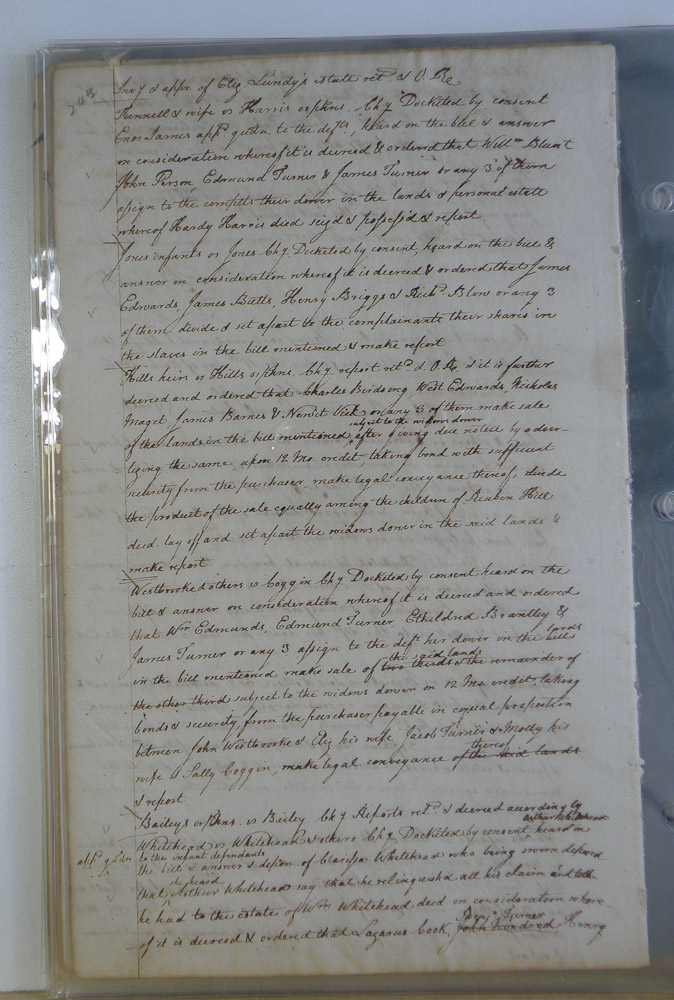 243
Invy & appr. of Eliz Lundy's estate retd & O. Re
Funnell & wife vs Harris orphns. Chy Docketed by consent
Enos James appd gudn. to the defts, Heard on the bill & answer
on consideration whereof it is decreed & ordered that Willm Blunt
John Person, Edmund Turner & James Turner or any 3 of them
assign to the complts their dower in the lands & personal estate
whereof Hardy Harris died seizd & possess'd & report
Jones infants vs Jones Chy Docketed by consent, heard on the bill &
answer on consideration whereof it is decreed & ordered that James
Edwards, James Butts, Henry Briggs & Richd. Blow or any 3
of them divide & set apart to the complainants their shares in
the slaves in the bill mentioned & make report
Hills heirs vs Hills orphns. Chy report retd. & O. R, & it is further
decreed and ordered that Charles Birdsong, West Edwards, Nicholas
Maget James Barnes & Newit Vick or any 3 of them make sale
subject to the widows dower
of the lands in the bill mentioned, after giving due notice by adver-
tizing the same, upon 12 Mo. credit, taking bond with sufficient
security from the purchaser make legal conveyance thereof, divide
the product of the sale equally among the children of Reuben Hill
decd. lay off and set apart the widows dower in the said lands &
make report
Westbrooke & others vs Coggin Chy Docketed by consent heard on the
bill & answer on consideration whereof it is decreed and ordered
that Wm Edmunds, Edmund Turner Etheldred Brantley &
James Turner or any 3 assign to the deft. her dower in the lands
in the bill mentioned make sale of the said lands two thirds & the remainder of
the other third subject to the widows dower on 12 Mo credit, taking
bond & security from the purchaser payable in equal proportion
between John Westbrooke & Eliz his wife Jacob Turner & Molly his
wife & Sally Coggin, make legal conveyance of thereof the said lands
& report
Baileys orphns. vs Bailey Chy Reports retd. & decreed according ly
Whitehead vs Whitehead & others Chy Docketed by consent heard on
appd gdn to the infant defendants
the bill & answer & depson of Clarissa Whitehead who being sworn deposed
she heard
that Arthur Whitehead say that he relinquishd all his claim
he had to the estate of Wm Whitehead decd on consideration where
of it is decreed & ordered that Lazarus Cook, Benja Turner John Kindred Henry